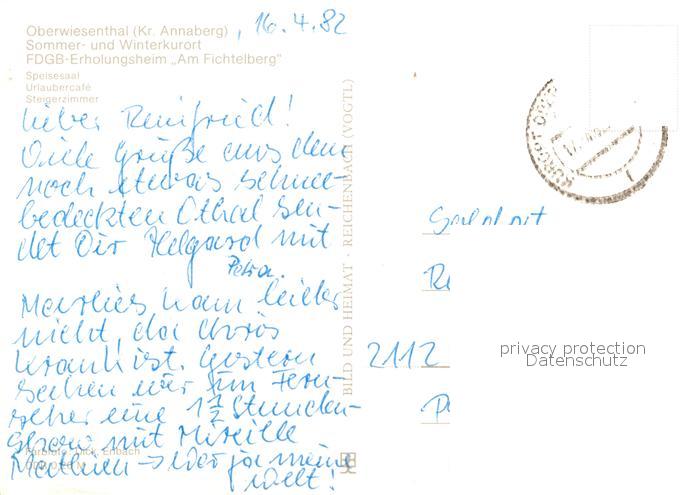 Oberwiesenthal (Kr. Annaberg)
Sommer- und Winterkurort
FDGB-Erholungsheim „Am Fichtelberg"
Speisesaal
Urlaubercafé
Steigerzimmer
, 16.4.82
Lieber Reinfried!
Viele Grüße aus dem
noch etwas schnee-
bedeckten Othal sen-
det Dir Helgard mit
Petra.
Marlies kam leider
nicht, da Doris
krank ist. Gestern
sahen wir im Fern-
seher eine 1½ Stunden-
Show mit Mireille
Mathieu → War ja meine
Welt!
BILD UND HEIMAT · REICHENBACH (VOGTL)
2112
privacy protection
Datenschutz